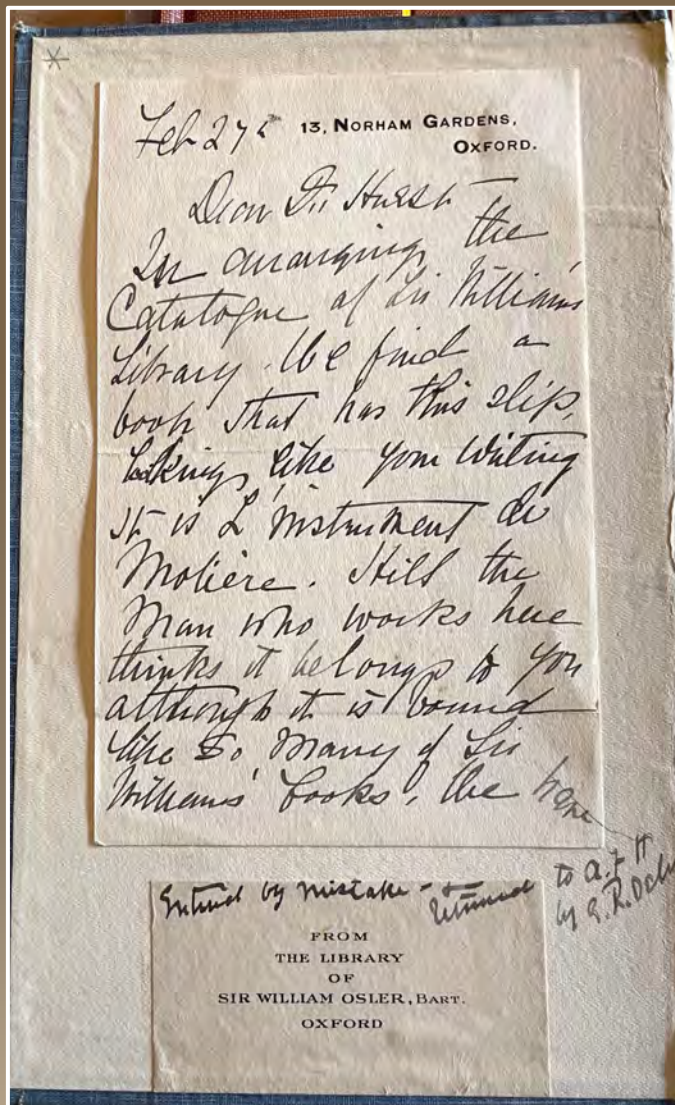 Feb 27th 13, NORHAM GARDENS,
OXFORD.
Dear Dr Hurst
In arranging the
Catalogue of Sir William's
Library. We find a
book that has this slip,
looking like your writing
it is L'instrument de
Molière. Hill the
man who works here
thinks it belongs to you
although it is bound
like so many of Sir
Williams' books, we have
Entered by mistake - & returned to A. F. H
by G. R. Osler
FROM
THE LIBRARY
OF
SIR WILLIAM OSLER, BART.
OXFORD